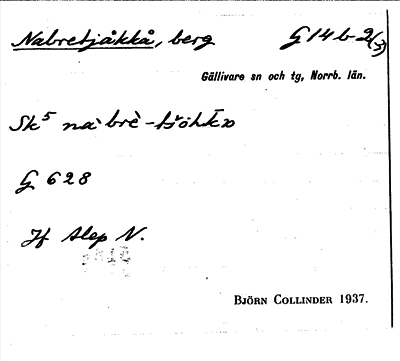 Nabretjåkkå, berg G14b-2(-3)
Gällivare sn och tg, Norrb. län.
Sk5 nàbrè-
G 628
Jf Alep N.
BJÖRN COLLINDER 1937.